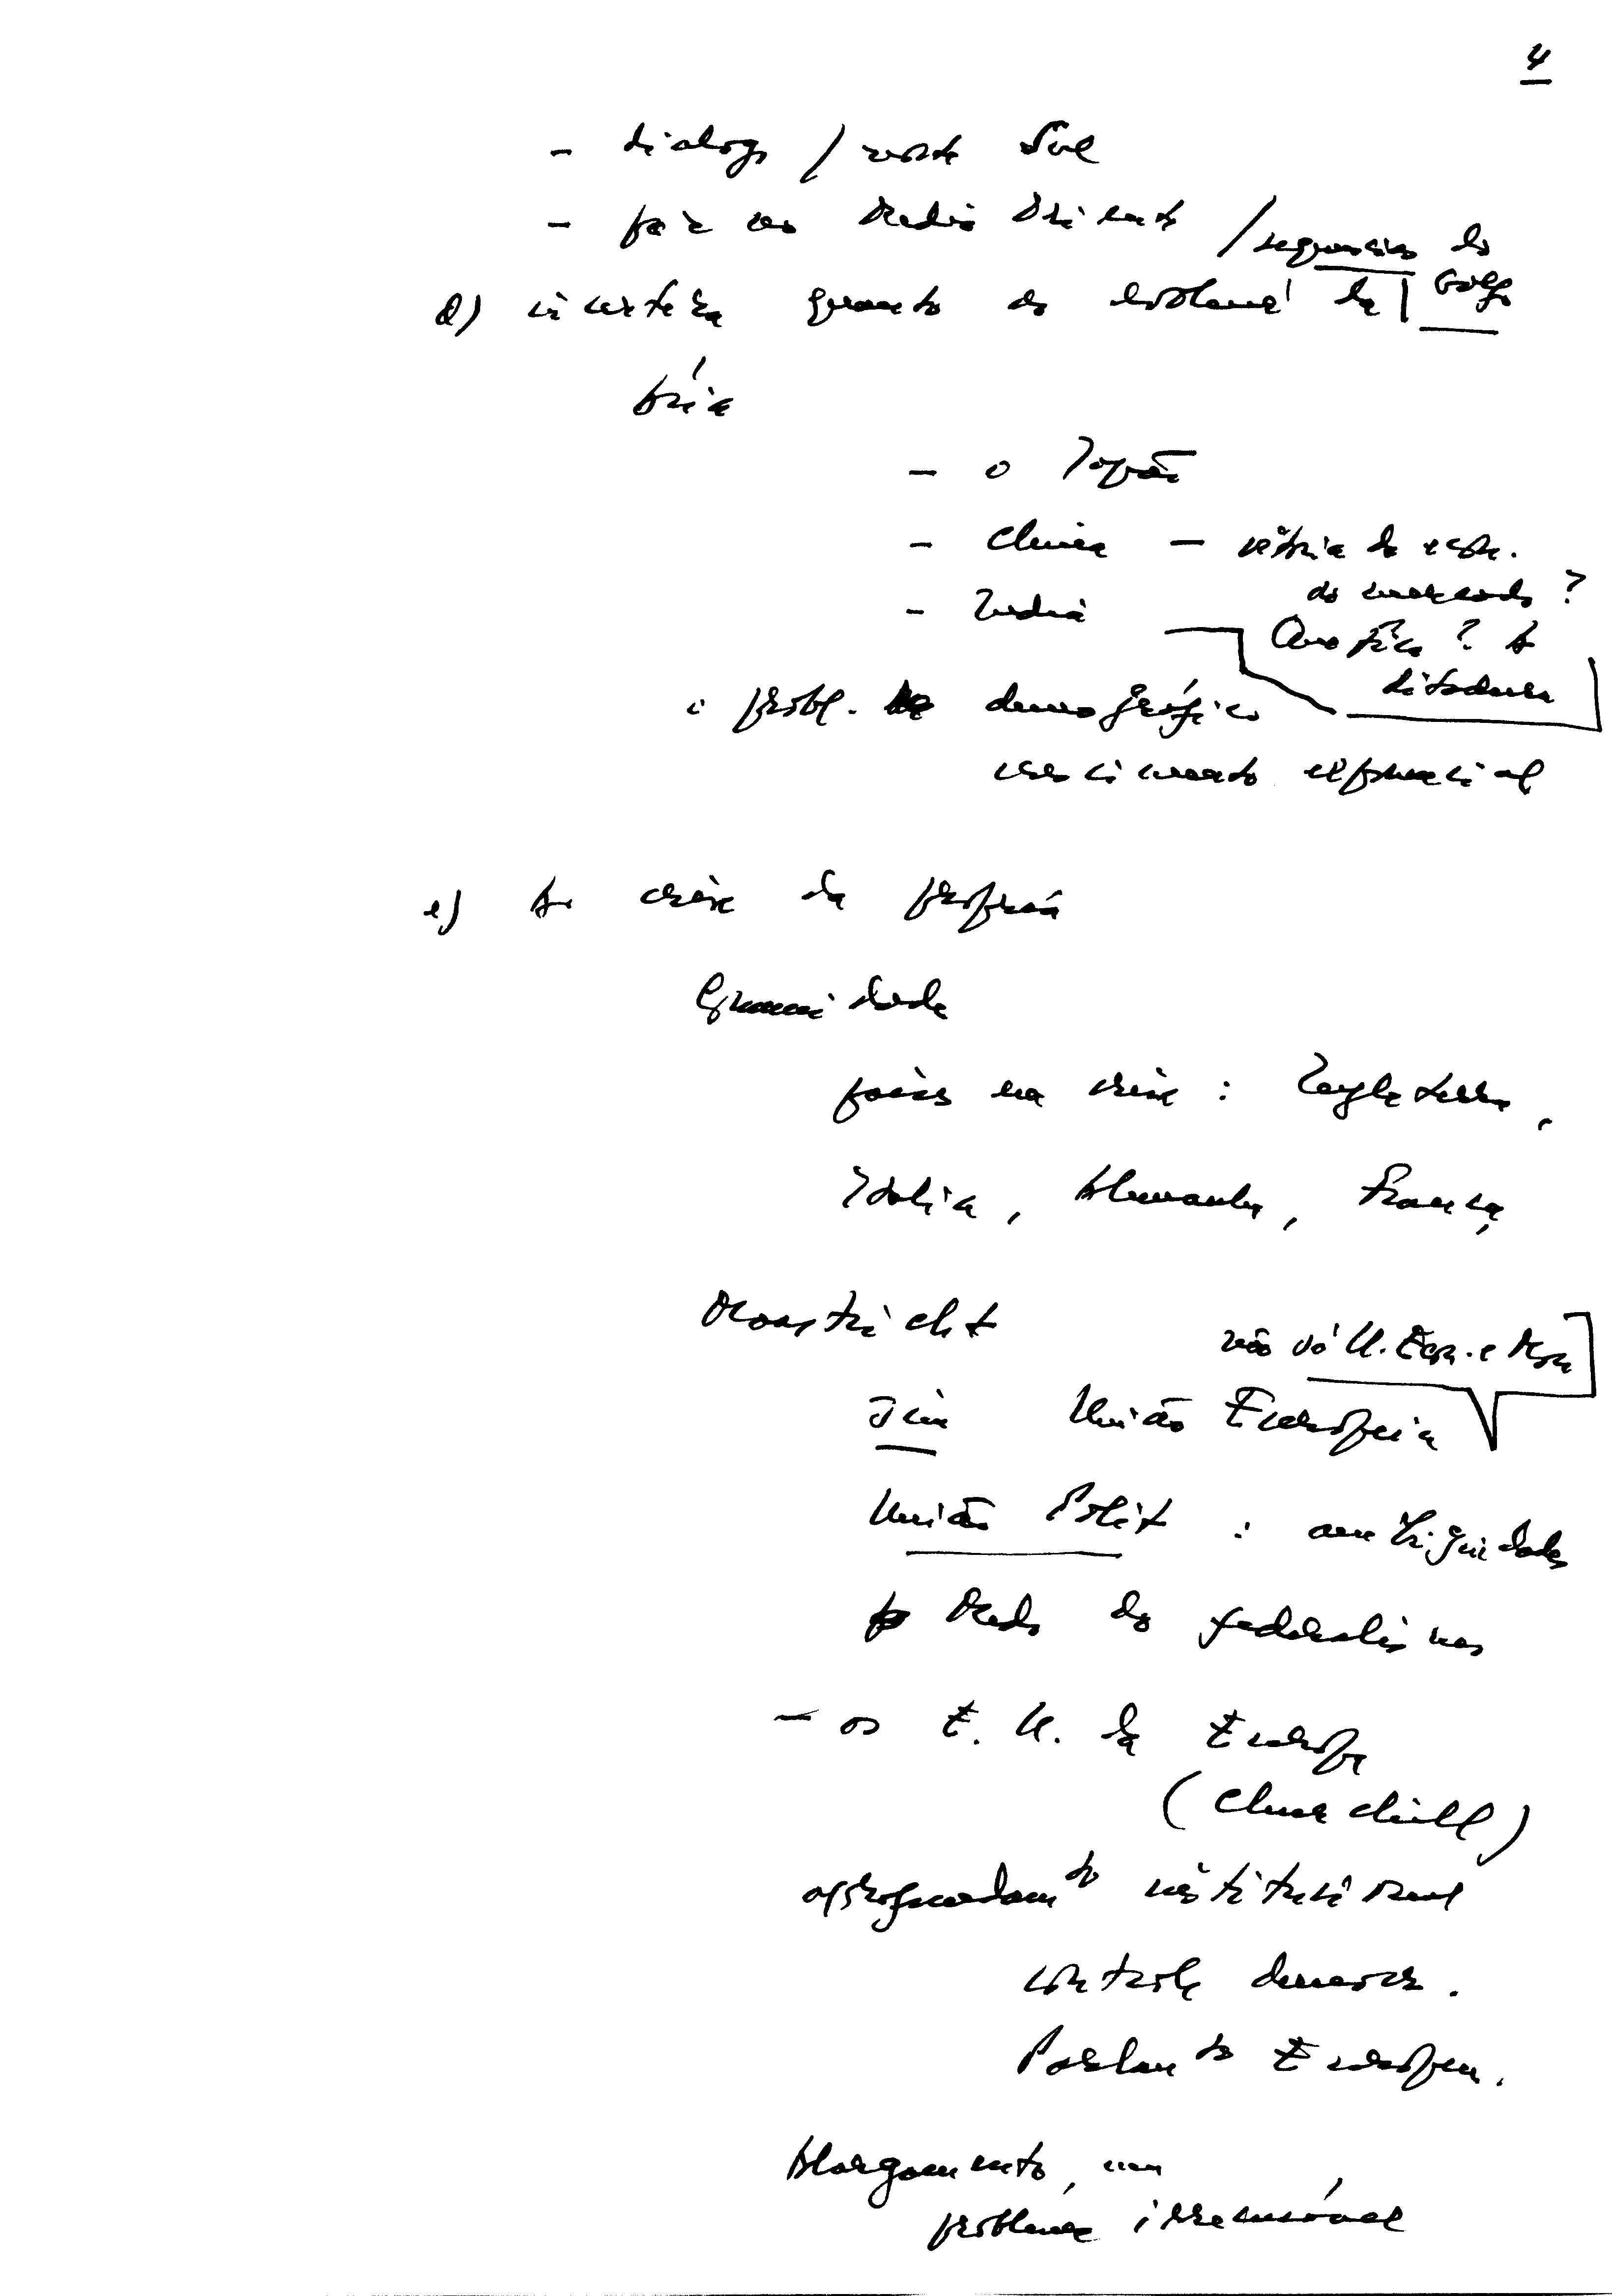 4
- dialogo / norte Sul
- paz no Medio Oriente / sequencias do Golfo
d) incerteza quanto do problema da
Ásia
- o Japão
- China - vitória da econ.
do mercado ?
- India
Questão ? A
ditadura
: probl. demográfico
crescimento exponencial
e) A crise da propria
Comunidade
paises na crise : Inglaterra,
Italia, Alemanha, França
Maastricht
não só U. Econ. e Mon
Sim União Europeia
União Polit : ambiguidades
Medo do federalismo
- os E. U. da Europa
(Churchill)
aprofundamto institucional
controle democr.
Parlamto Europeu.
Alargamento, um
problema irrecusável